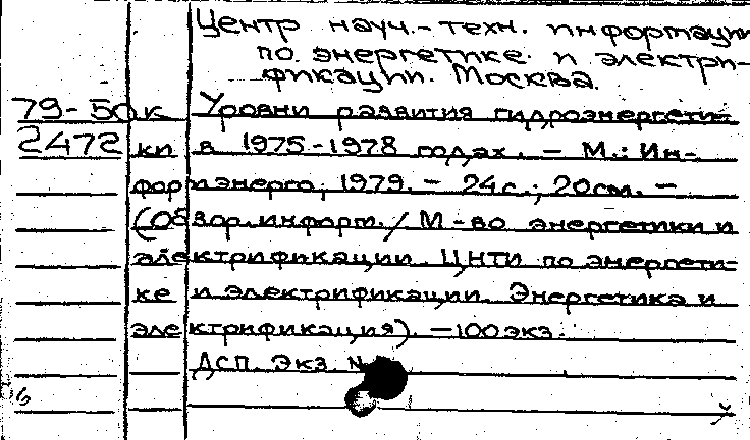 Центр науч.-техн. информации
по энергетике и электри-
фикации. Москва.
79-50к Уровни развития гидроэнергети-
2472 ки в 1975-1978 годах. - М.: Ин-
формэнерго, 1979. - 24с.; 20см. -
(Обзор.информ./ М-во энергетики и
электрификации. ЦНТИ по энергети-
ке и электрификации. Энергетика и
электрификация). - 100экз.
ДСП. Экз. №